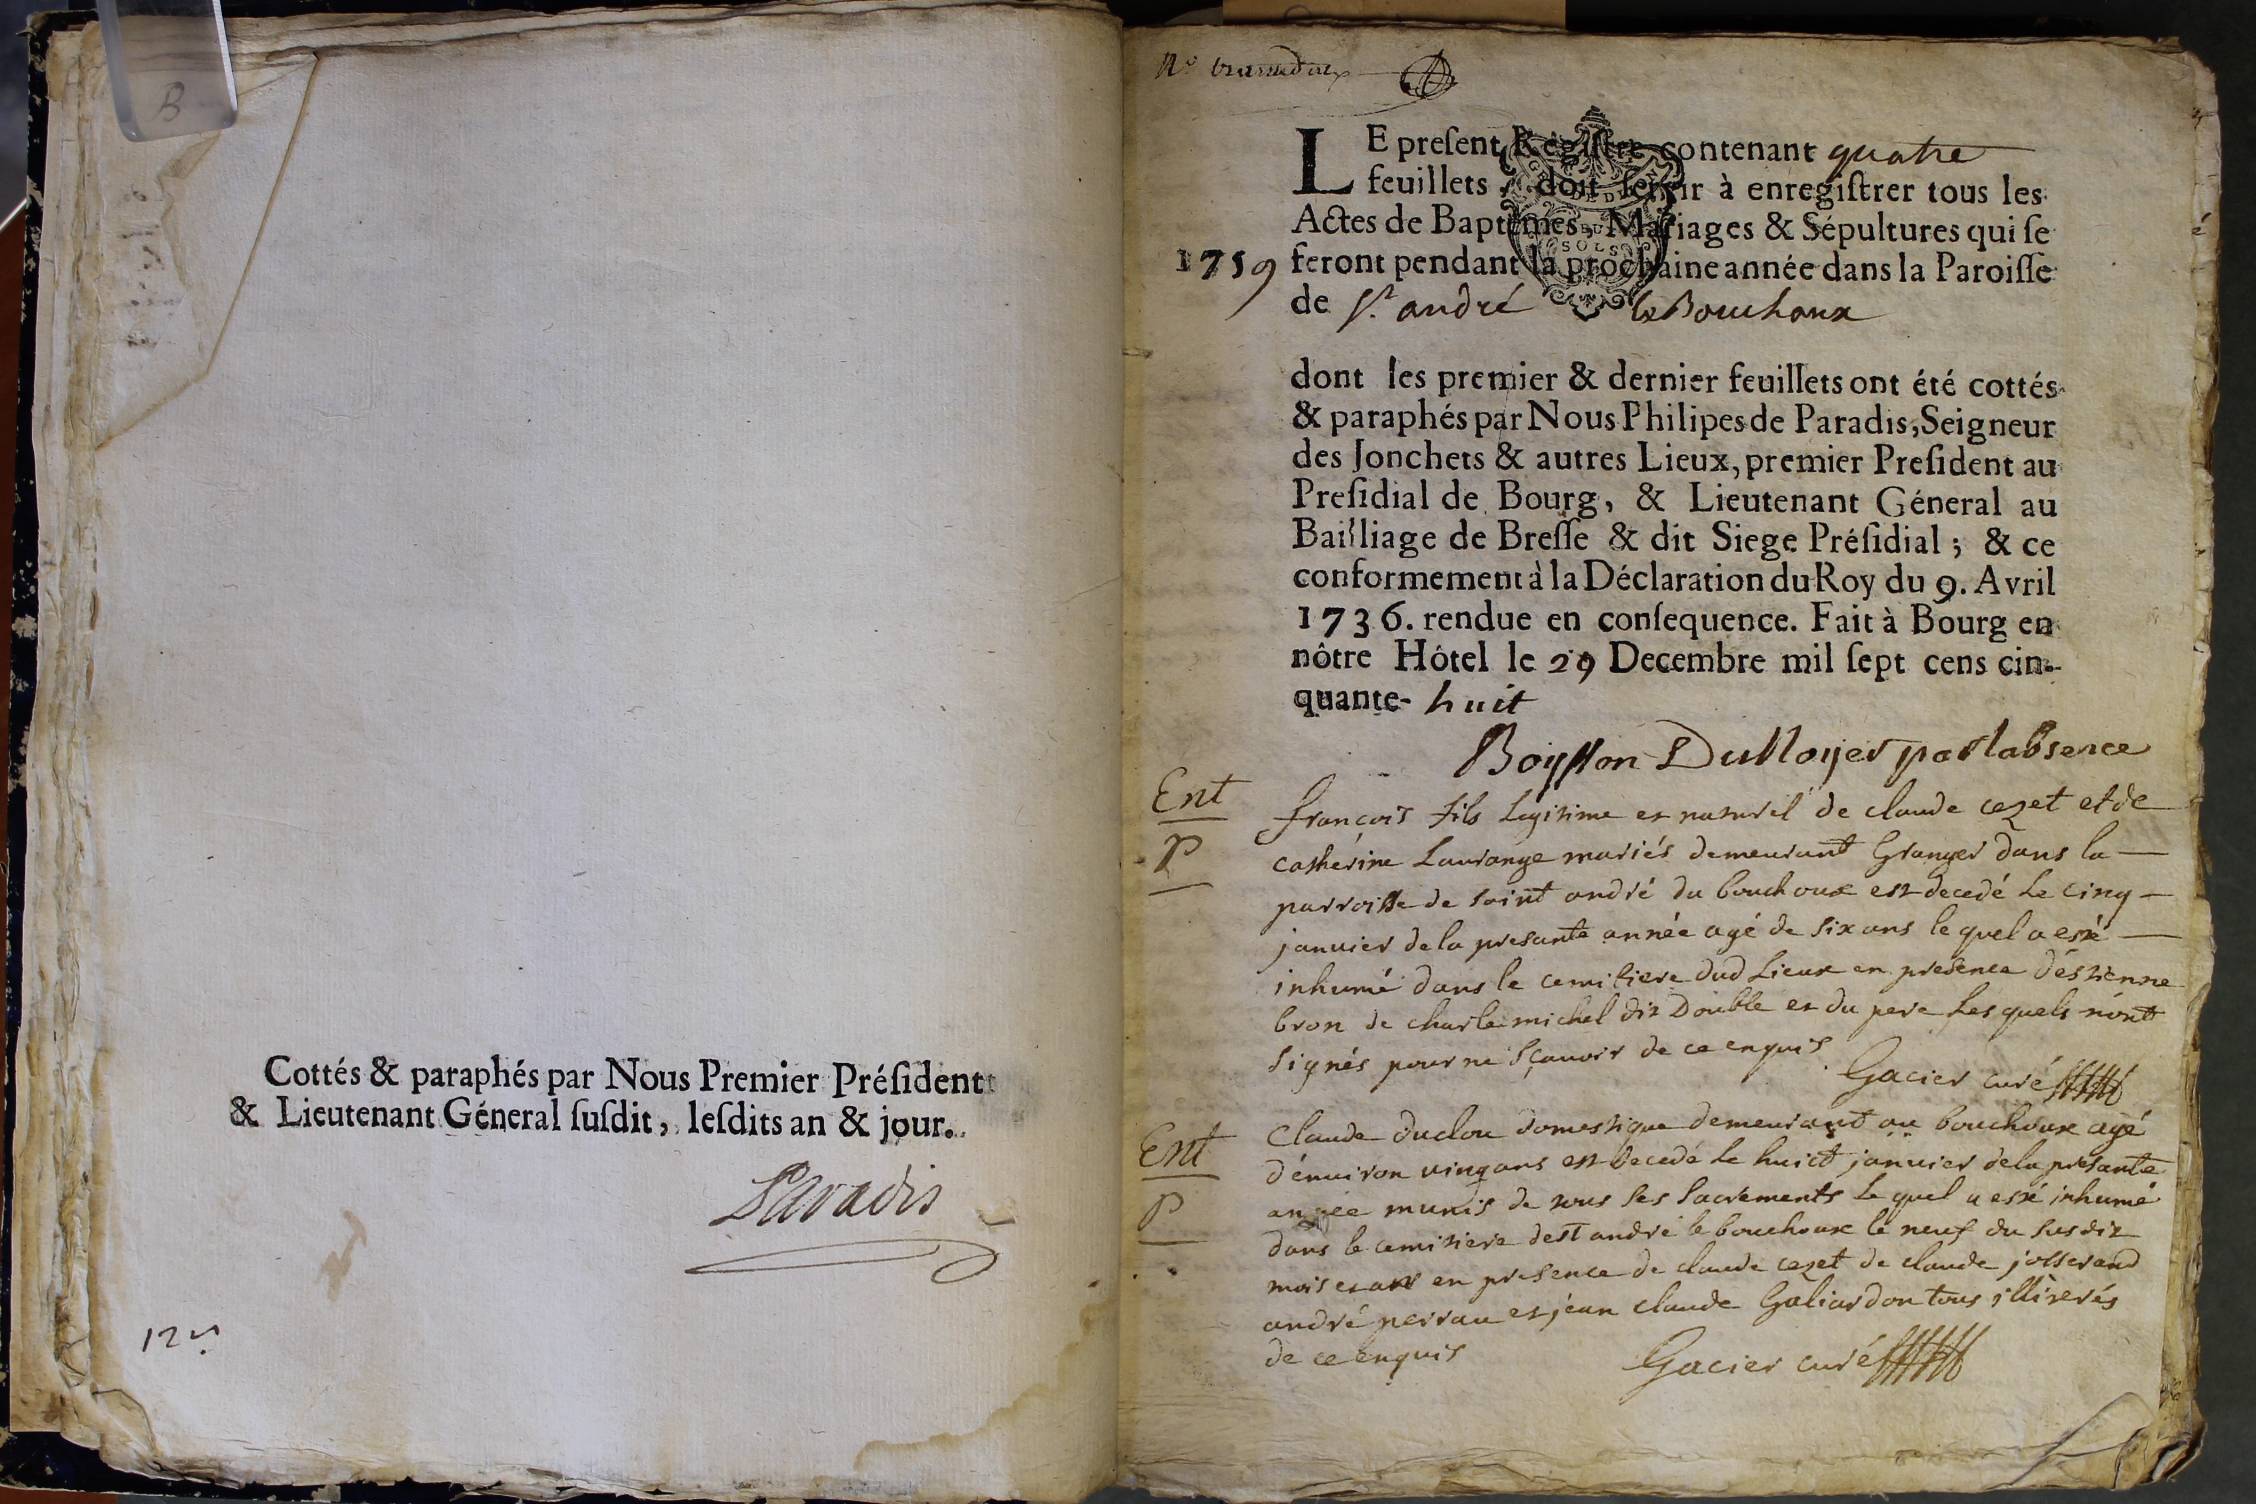 B
Cottés & paraphés par Nous Premier Préſident
& Lieutenant Géneral ſuſdit, leſdits an & jour.
Paradis
12
N.º
LE preſent Régiſtre contenant quatre
feuillets, doit ſervir à enregiſtrer tous les
Actes de Baptêmes, Mariages & Sépultures qui ſe
1759 feront pendant la prochaine année dans la Paroiſſe
de St. andré le Bouchoux
dont les premier & dernier feuillets ont été cottés
& paraphés par Nous Philipes de Paradis, Seigneur
des Jonchets & autres Lieux, premier Preſident au
Preſidial de Bourg, & Lieutenant Géneral au
Bailliage de Breſſe & dit Siege Préſidial ; & ce
conformement à la Déclaration du Roy du 9. Avril
1736. rendue en conſequence. Fait à Bourg en
nôtre Hôtel le 29 Decembre mil ſept cens cin-
quante- huit
par labsence
Ent
P
françois fils legitime et naturel de claude cezet et de
catherine Laurange mariés demeurant Granger dans la
parroisse de saint andré du bouchoux est decedé le cinq
janvier de la presante année agé de six ans le quel a esté
inhumé dans le cemitiere dud Lieux en presence d'estienne
bron de charle michel dit Double et du pere Lesquels n'ont
signés pour ne sçavoir de ce enquis
Gacier curé
Ent
P
Claude duclou domestique demeurant au bouchoux agé
d'environ vingt ans est decedé le huict janvier de la presante
année munis de tous ses sacrements le quel a esté inhumé
dans le cemitiere de st andré le bouchoux le neuf du susdit
mois et an en presence de claude cezet de claude josserand
andré perrau et jean claude Galiardon tous illiterés
de ce enquis
Gacier curé